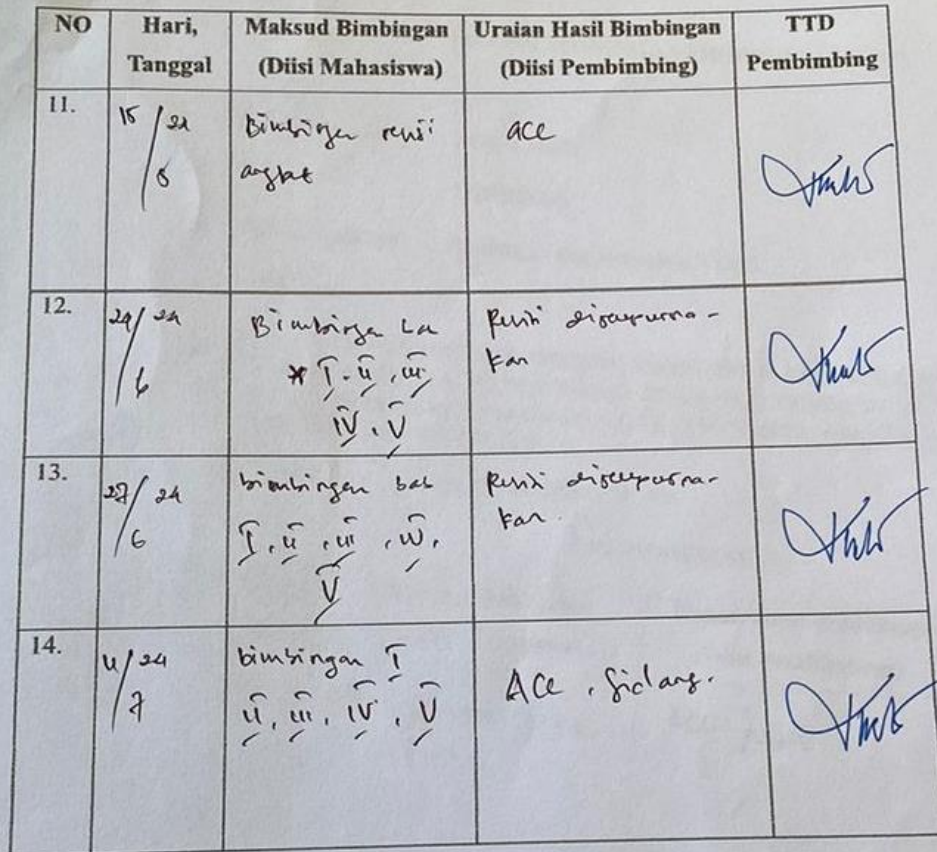 NO Hari, Tanggal Maksud Bimbingan (Diisi Mahasiswa) Uraian Hasil Bimbingan (Diisi Pembimbing) TTD Pembimbing
11.
15/24
5
Bimbingan revisi
angket
acc
12.
24/24
6
Bimbingan bab
* I. II, III
IV, V
Revisi disempurna-
kan
13.
27/24
6
bimbingan bab
I, II, III, IV,
V
Revisi disempurna-
kan.
14.
4/24
7
bimbingan I
II, III, IV, V
Acc, Sidang.